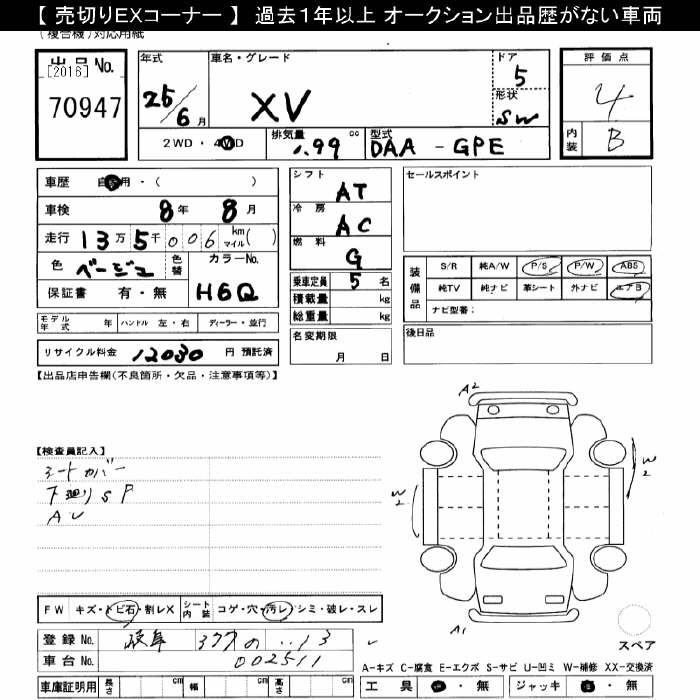 【 売切りEXコーナー 】 過去１年以上 オークション出品歴がない車両
(複合機)対応用紙
出品No.
[2016]
70947
年式
25/6月
車名・グレード
XV
ドア
5
形状
SW
評価点
4
内装
B
2WD・4WD
排気量
1.99 cc
型式
DAA - GPE
車歴 自家用・( )
車検 8年 8月
走行 13万5千006 km マイル( )
色 ベージュ
色替
カラーNo.
H6Q
保証書 有・無
シフト
AT
冷房
AC
燃料
G
乗車定員 5 名
積載量 kg
総重量 kg
名変期限
月 日
セールスポイント
装備品
S/R 純A/W P/S P/W ABS
純TV 純ナビ 革シート 外ナビ エアB
ナビ型番:
後日品
モデル年式 年 ハンドル 左・右 ディーラー・並行
リサイクル料金 12030 円 預託済
【出品店申告欄(不良箇所・欠品・注意事項等)】
【検査員記入】
シートカバー
下廻りSP
AU
A2
W2
W2
A1
FW キズ・トビ石・割レX シート内装 コゲ・穴・汚レ・シミ・破レ・スレ
登録No. 岐阜
車台No. 002511
スペア
A-キズ C-腐食 E-エクボ S-サビ U-凹ミ W-補修 XX-交換済
車庫証明用 長さ cm 幅 cm 高さ cm
工具 ・無 ジャッキ ・無